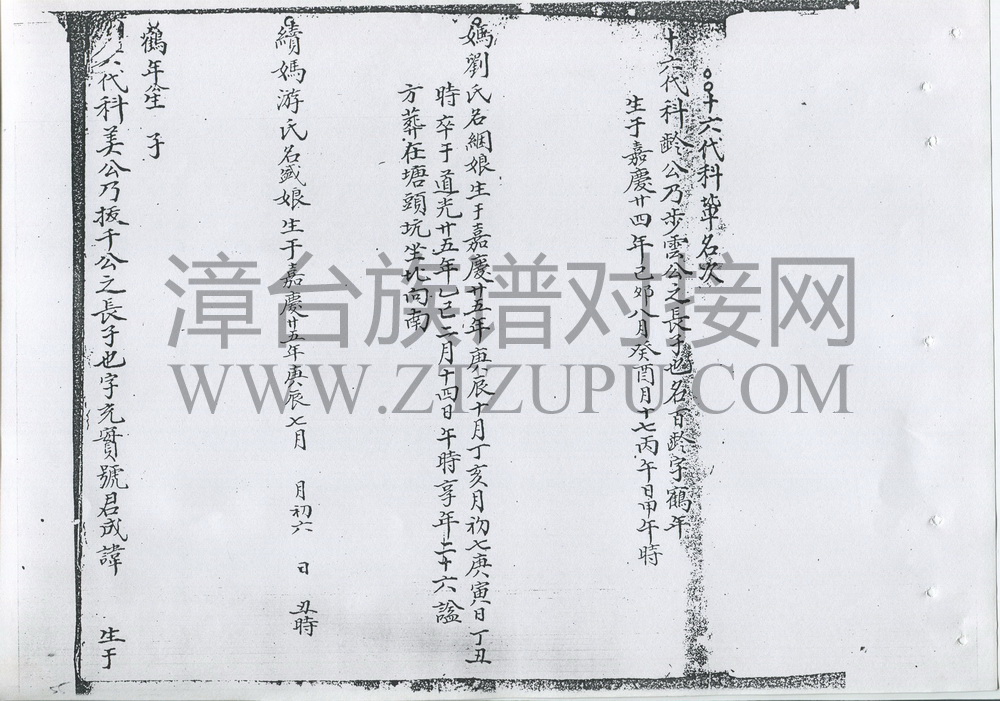 十六代科輩名次
十六代科齡公乃步雲公之長子也名百齡字鶴年
生于嘉慶廿四年己卯八月癸酉月十七丙午日甲午時
媽劉氏名綑娘生于嘉慶廿五年庚辰十月丁亥月初七庚寅日丁丑
時卒于道光廿五年乙巳二月十四日午時享年二十六謚
方葬在塘頭坑坐北向南
續媽游氏名盛娘生于嘉慶廿五年庚辰七月 月初六 日 丑時
鶴年生 子
六代科美公乃拔千公之長子也字充實號君成諱 生于
漳台族谱对接网
WWW.ZIZUPU.COM